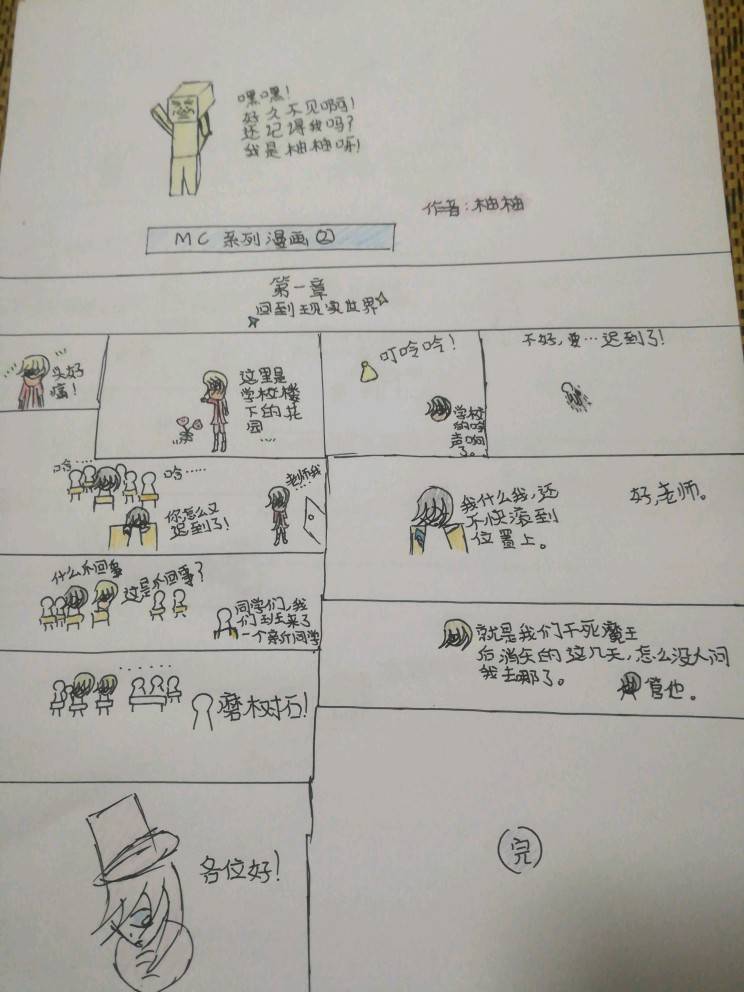 嘿嘿!
好久不见啊!
还记得我吗?
我是柚柚呀!
作者:柚柚
MC系列漫画②
第一章
回到现实世界
头好
痛!
这里是
学校楼
下的花
园
....
叮呤呤!
学校
的呤
声响
了。
不好,要…迟到了!
呤....
呤......
老师我
....
你怎么又
迟到了!
我什么我,还
不快滚到
位置上。
好,老师。
什么个回事
这是个回事?
同学们,我
们班来了
一个新同学
就是我们干死魔王
后消失的这几天,怎么没人问
我去哪了。
管他。
......
磨树石!
各位好!
完